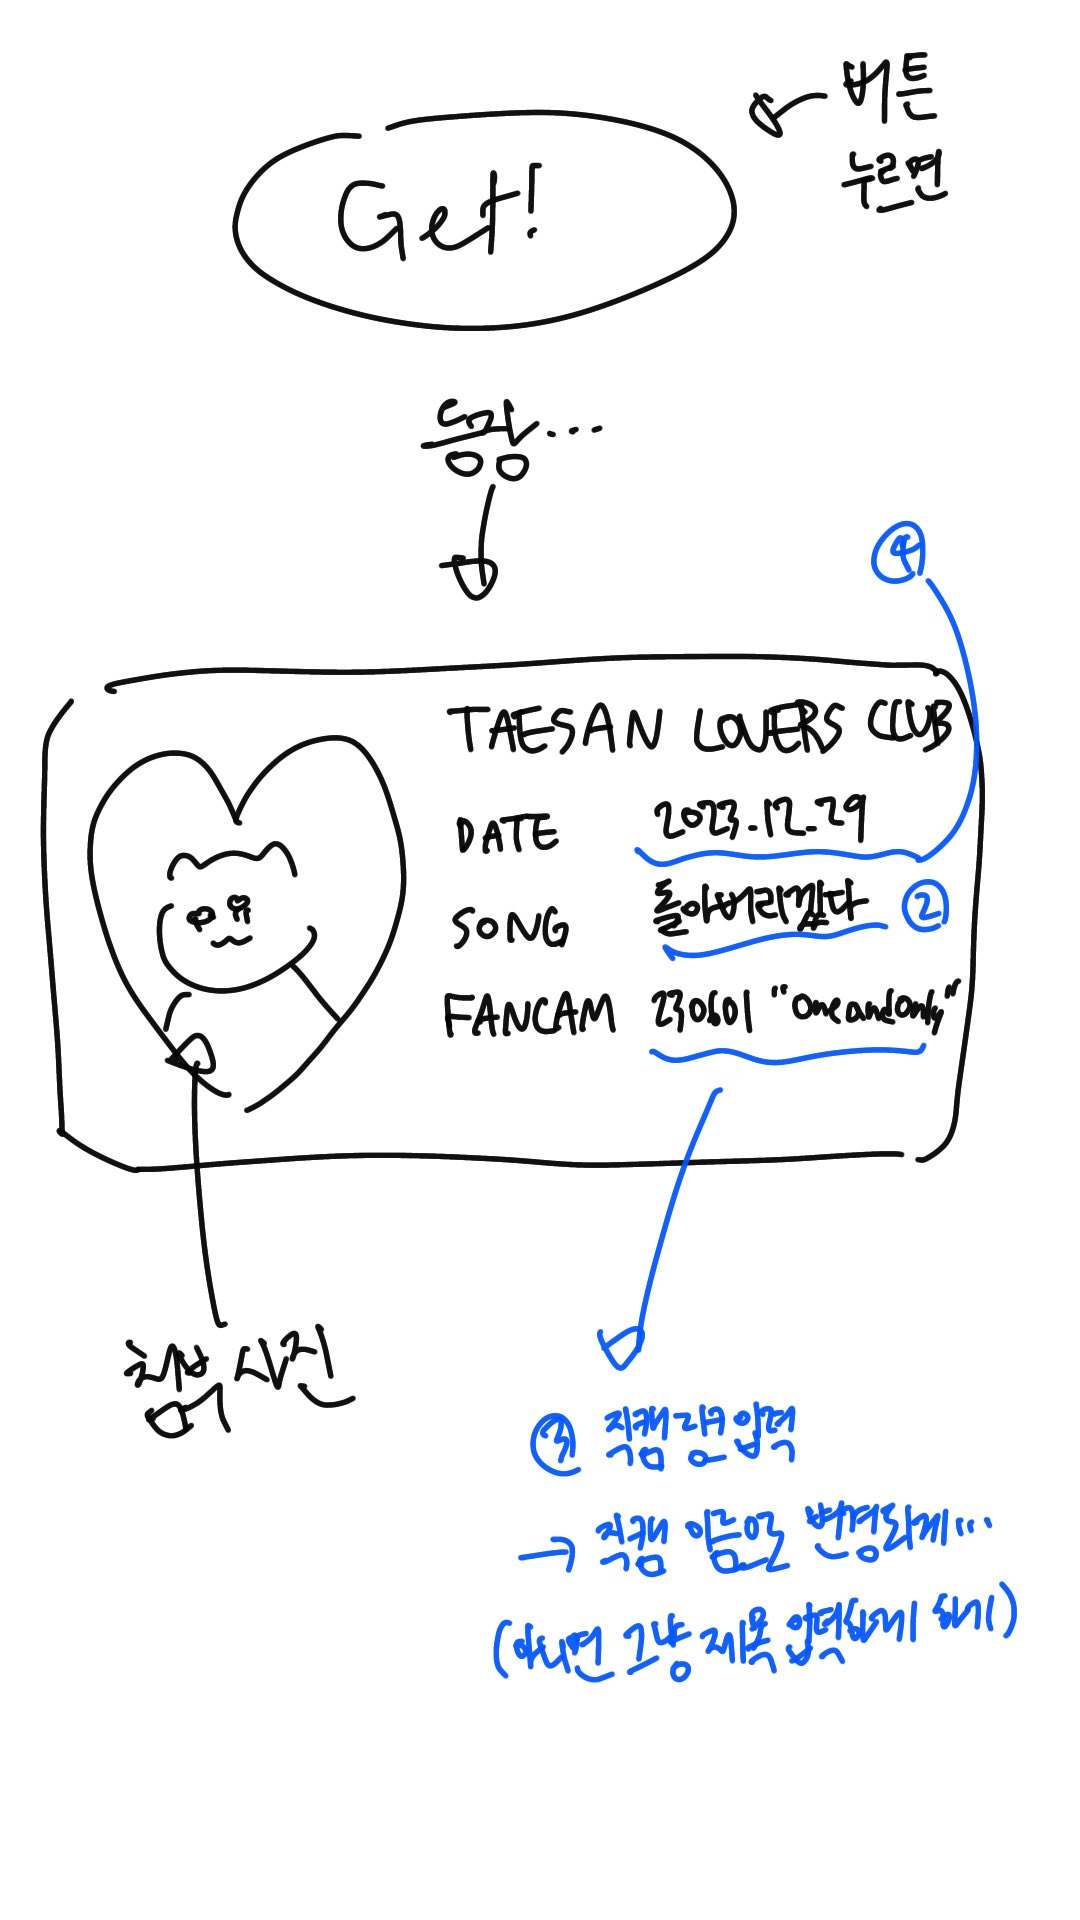 버튼
누르면
Get!
등장...
④
TAESAN LOVERS CLUB
DATE 2023.12.29
SONG 돌아버리겠다 ②
FANCAM 230601 "One and Only"
첨부 사진
③ 직캠 링크 입력
→ 직캠 이름으로 변경되게...
(아니면 그냥 제목 입력하게 하기)